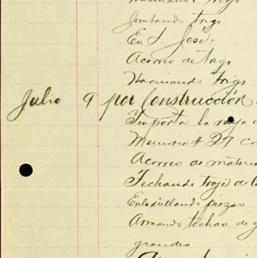 Juntando trigo
En S. José.
Acarreo de trigo
Hacinando trigo
Julio 9 por Construcción
Importa la raya d
Memoria # 27 co
Acarreo de materia
Techando troje de l
Enladrillando piezas
Armando techos de g
grandes